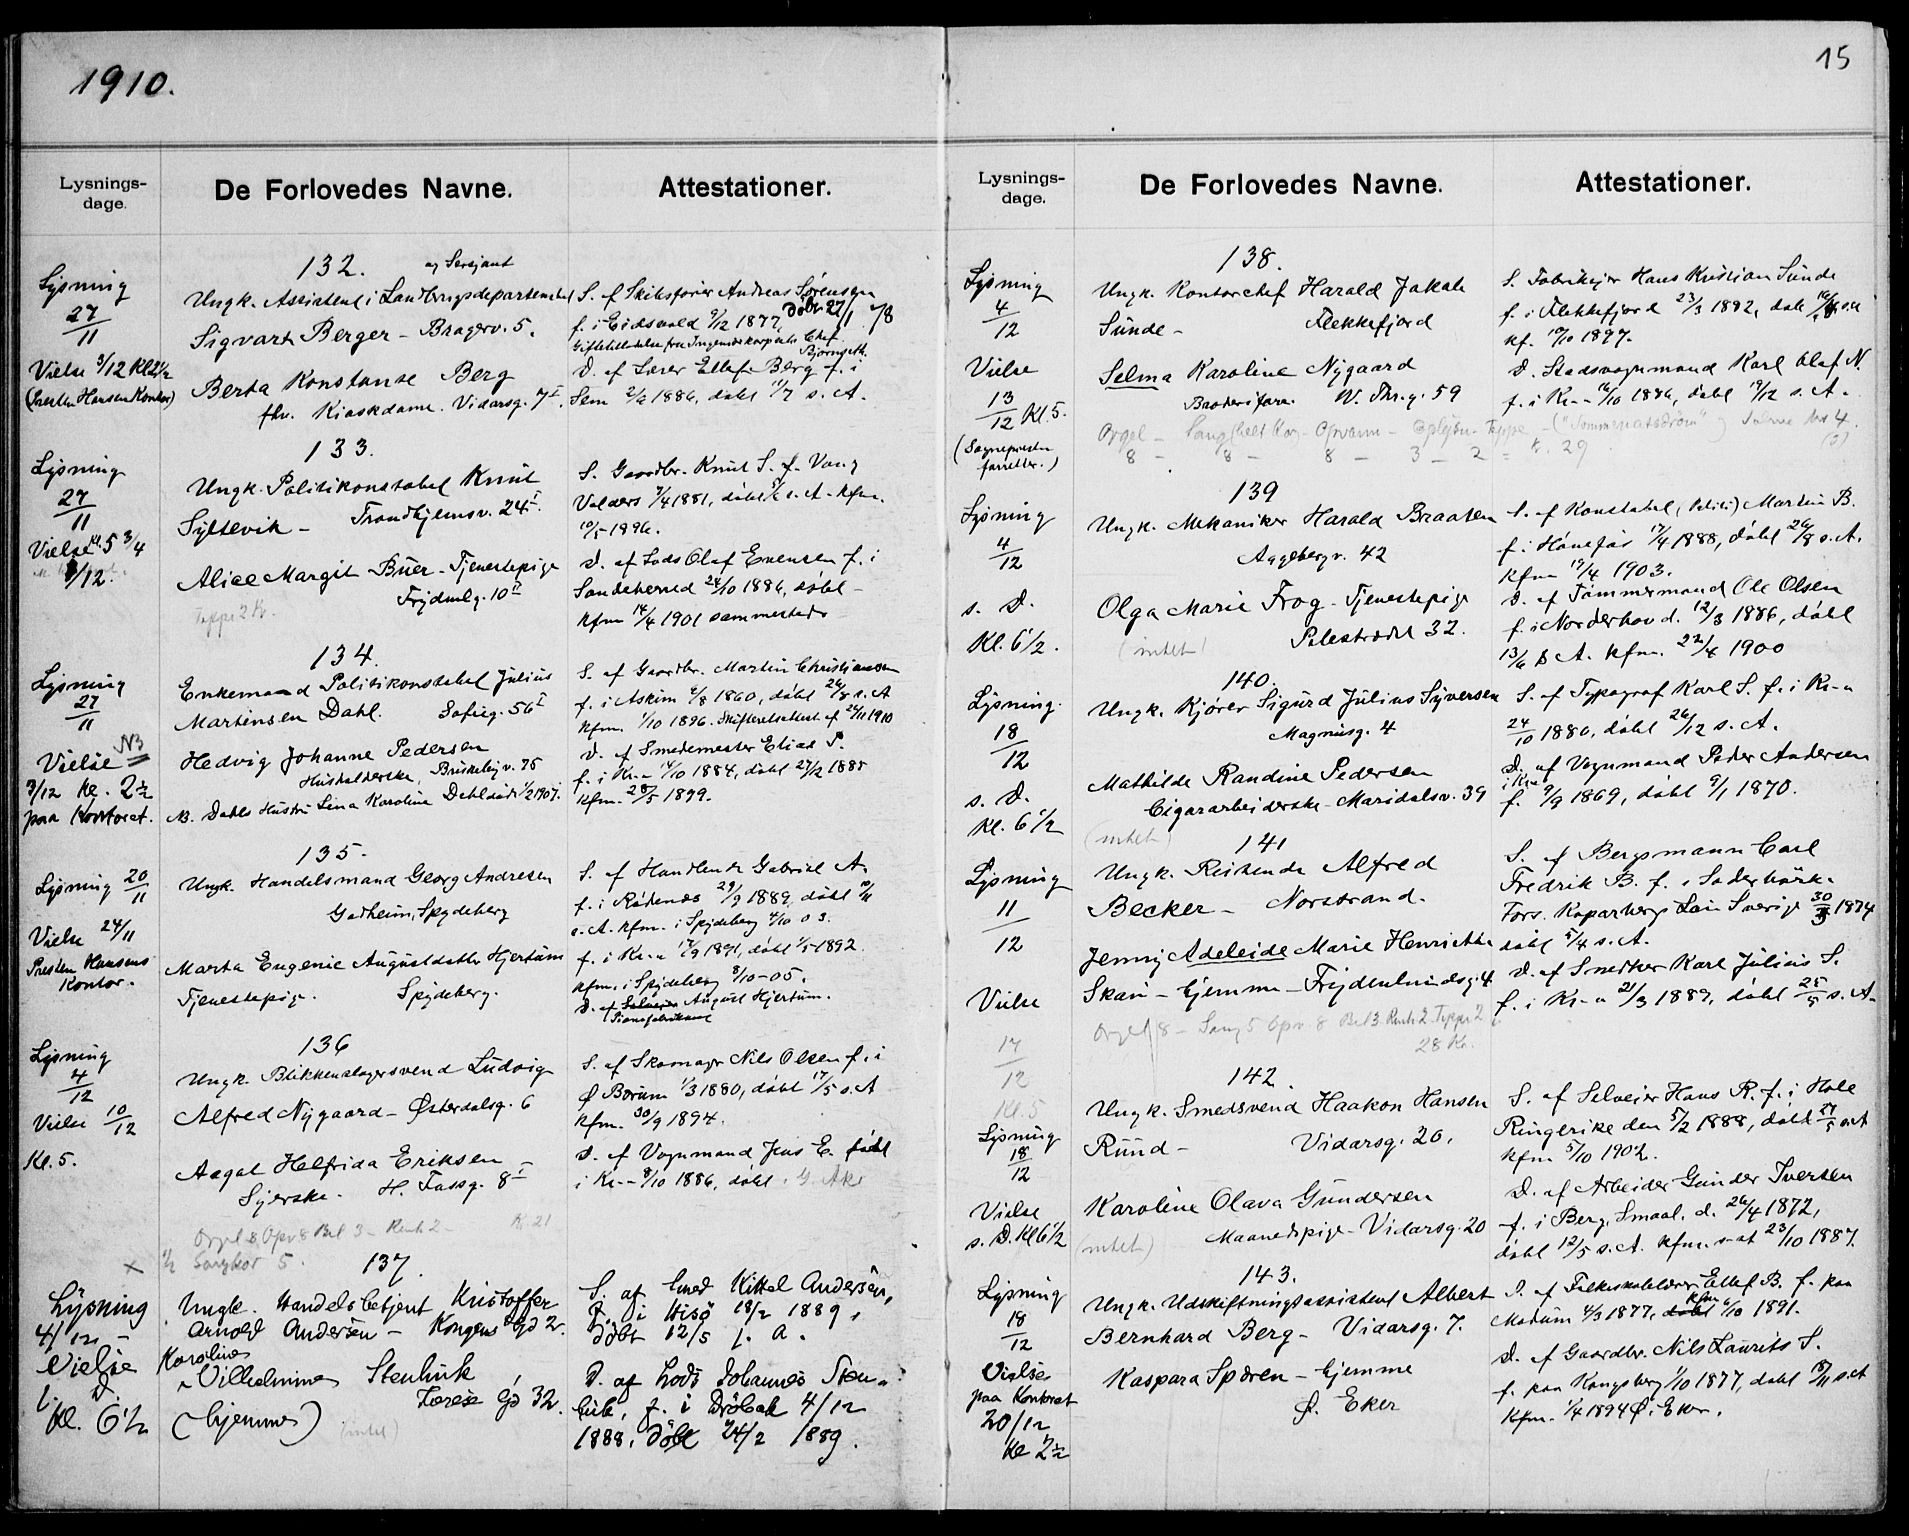 1910.
Lysnings-
dage.
De Forlovedes Navne.
Attestationer.
132.
og Sersjant
Lysning
27/11
Vielse 3/12 Kl 2½
(Presten Hansen Kontor)
Ungk. Assistent i Landbrugsdepartementet
Sigvart Berger - Bragerv. 5.
Berta Konstanse Berg
fhv. Kioskdame. Vidarsg. 7 I.
S. af Skibsfører Andreas Sørensen
f. i Eidsvold 9/12 1877, døbt 27/1 78
Giftetilladelse fra Ingeniørkorpsets Chef
D. af Lærer Ellef Berg f. i
Sem 2/6 1886, døbt 11/7 s. A.
133.
Lysning
27/11
Vielse Kl. 5 3/4
8/12.
Ungk. Politikonstabel Knut
Syltevik - Trondhjemsv. 24 I.
Alice Margit Buer - Tjenestepige
Frydenlg. 10 II
Teppe 2 Kr.
S. Gaardbr. Knut S. f. Vang
Valders 7/4 1881, døbt s. A. kfm.
10/5 1896.
D. af Lods Olaf Evensen f. i
Sandeherred 24/10 1886, døbt -
kfm 14/4 1901 sammesteds
134.
Lysning
27/11
N3
Vielse
3/12 kl. 2½
paa Kontoret.
Enkemand Politikonstabel Julius
Martinsen Dahl. Sofieg. 56 I
Hedvig Johanne Pedersen
Husholderske, Biskelejv. 75
M. Dahls Hustru Lina Karoline Dahl død 1/2 1907.
S. af Gaardbr. Martin Christianson
f. i Askim 6/8 1860, døbt 26/8 s. A
kfm. 1/10 1896. Skifteretsattest af 24/11 1910
D. af Smedemester Elias P.
f. i Kr.-a 14/10 1884, døbt 27/2 1885
kfm. 28/5 1899.
135.
Lysning 20/11
Vielse 24/11
Presten Hansens
Kontor.
Ungk. Handelsmand Georg Andresen
Godheim, Spydeberg
Marta Eugenie Augustdatter Hjertum
Tjenestepige. Spydeberg.
S. af Handlende Gabriel A.
f. i Rødenes 29/9 1889, døbt 10/11
s. A. kfm. i Spydeberg 4/10 03.
f. i Kr.-a 17/9 1891, døbt 1/5 1892
kfm. i Spydeberg 8/10-05.
D. af Selveier August Hjertum.
Pianofabrikant
136
Lysning
4/12
Vielse 10/12
Kl. 5.
Ungk. Blikkenslagersvend Ludvig
Alfred Nygaard - Østerdalsg. 6
Aagot Helfrida Eriksen -
Syerske. H. Tassg. 8 I
Orgel 8 Opv 8 Bel 3 - Renh 2 - Kr. 21
½ Sangkor 5.
S. af Skomager Nils Olsen f. i
Ø Bærum 1/3 1880, døbt 17/5 s. A
kfm. 30/9 1894.
D. af Vognmand Jens E. født
i Kr.-a 8/10 1886, døbt i G. Aker
137.
Lysning
4/12 -
Vielse
s. D.
Kl. 6½
Ungk. Handelsbetjent Kristoffer
Arnold Andersen - Kongens Gd 2.
Karoline
Vilhelmine Stenbuk,
Terese Gd 32.
(hjemme)
(intet)
S. af Smed Kittel Andersen,
f. i Hisø 18/2 1889,
døbt 12/5 s. A.
D. af Lods Johannes Sten-
buk, f. i Drøbak 4/12
1888, døbt 24/2 1889.
15
Lysnings-
dage.
De Forlovedes Navne.
Attestationer.
138.
Lysning
4/12
Vielse
13/12 Kl 5.
(Sognepresten
forretter.)
Ungk. Kontorchef Harald Jakob
Sunde - Flekkefjord
Selma Karoline Nygaard
W. Thr. g. 59
Orgel - Sang (helt Kor - Opvarm - Belysn - Teppe - ("Sommernatsdrøm")
8 - 8 - 8 - 3 - 2 = Kr. 29
S. Fabrikejer Hans Kristian Sunde
f. i Flekkefjord 23/3 1882, døbt s. A
kf. 10/10 1897.
D. Stadsvognmand Karl Olaf N.
f. i Kr.-a 16/10 1886, døbt 19/12 s. A.
139
Lysning
4/12
s. D.
Kl. 6½.
Ungk. Mekaniker Harald Braaten
Aagebergv. 42
Olga Marie Frog - Tjenestepige
Pilestrædet 32.
(intet)
S. af Konstabel (Politi) Martin B.
f. i Hønefos 17/4 1888, døbt 26/8 s. A.
kfm 19/4 1903.
D. af Tømmermand Ole Olsen
f. i Norderhov d. 12/3 1886, døbt
13/6 s A. kfm. 22/4 1900
140.
Lysning.
18/12
s. D.
Kl. 6½
Ungk. Kjører Sigurd Julius Syversen
Magnusg. 4
Mathilde Randine Pedersen
Cigararbeiderske - Maridalsv. 39
(intet)
S. af Typograf Karl S. f. i Kr.-a
24/10 1880, døbt 26/12 s. A.
D. af Vognmand Peder Andersen
i Kra
f. 9/9 1869, døbt 9/1 1870.
141
Lysning
11/12
Vielse
17/12
Kl. 5
Ungk. Reisende Alfred
Becker - Norstrand.
Jenny Adeleide Marie Henriette
Skari - hjemme - Frydenlundsg. 4
Orgel 8 - Sang 5 Opv 8 Bel 3 Renh 2 Teppe 2
28 Kr.
S. af Bergsmann Carl
Fredrik B. f. i Söderbärke
Fors. Koparbergs Län Sverige 30/3 1874
døbt 5/4 s. A.
D. af Snedker Karl Julius S.
f. i Kr.-a 21/3 1889, døbt 25/5 s. A.
142.
Lysning
18/12
Vielse
s. D. Kl 6½
Ungk. Smedsvend Haakon Hansen
Ruud - Vidarsg. 20.
Karoline Olava Gundersen
Maanedspige - Vidarsg. 20
(intet)
S. af Selveier Hans R. f. i Hole
Ringerike den 5/2 1888, døbt 27/5 s. A
kfm 5/10 1902.
D. af Arbeider Gunder Iversen
f. i Berg, Smaal. d. 26/4 1872,
døbt 12/5 s. A. kfm. s-st 23/10 1887.
143.
Lysning
18/12
Vielse
paa Kontoret
20/12
Kl 2½
Ungk. Udskiftningsassistent Albert
Bernhard Berg - Vidarsg. 7.
Kaspara Spæren - hjemme
Ø. Eker
S. af Folkeskolelærer Ellef B. f. paa
Modum 4/3 1877, døbt kfm 4/10 1891.
D. af Gaardbr. Nils Laurits S.
f. paa Kongsberg 1/10 1877, døbt 18/11 s. A
kfm. 1/4 1894 Ø. Eker.